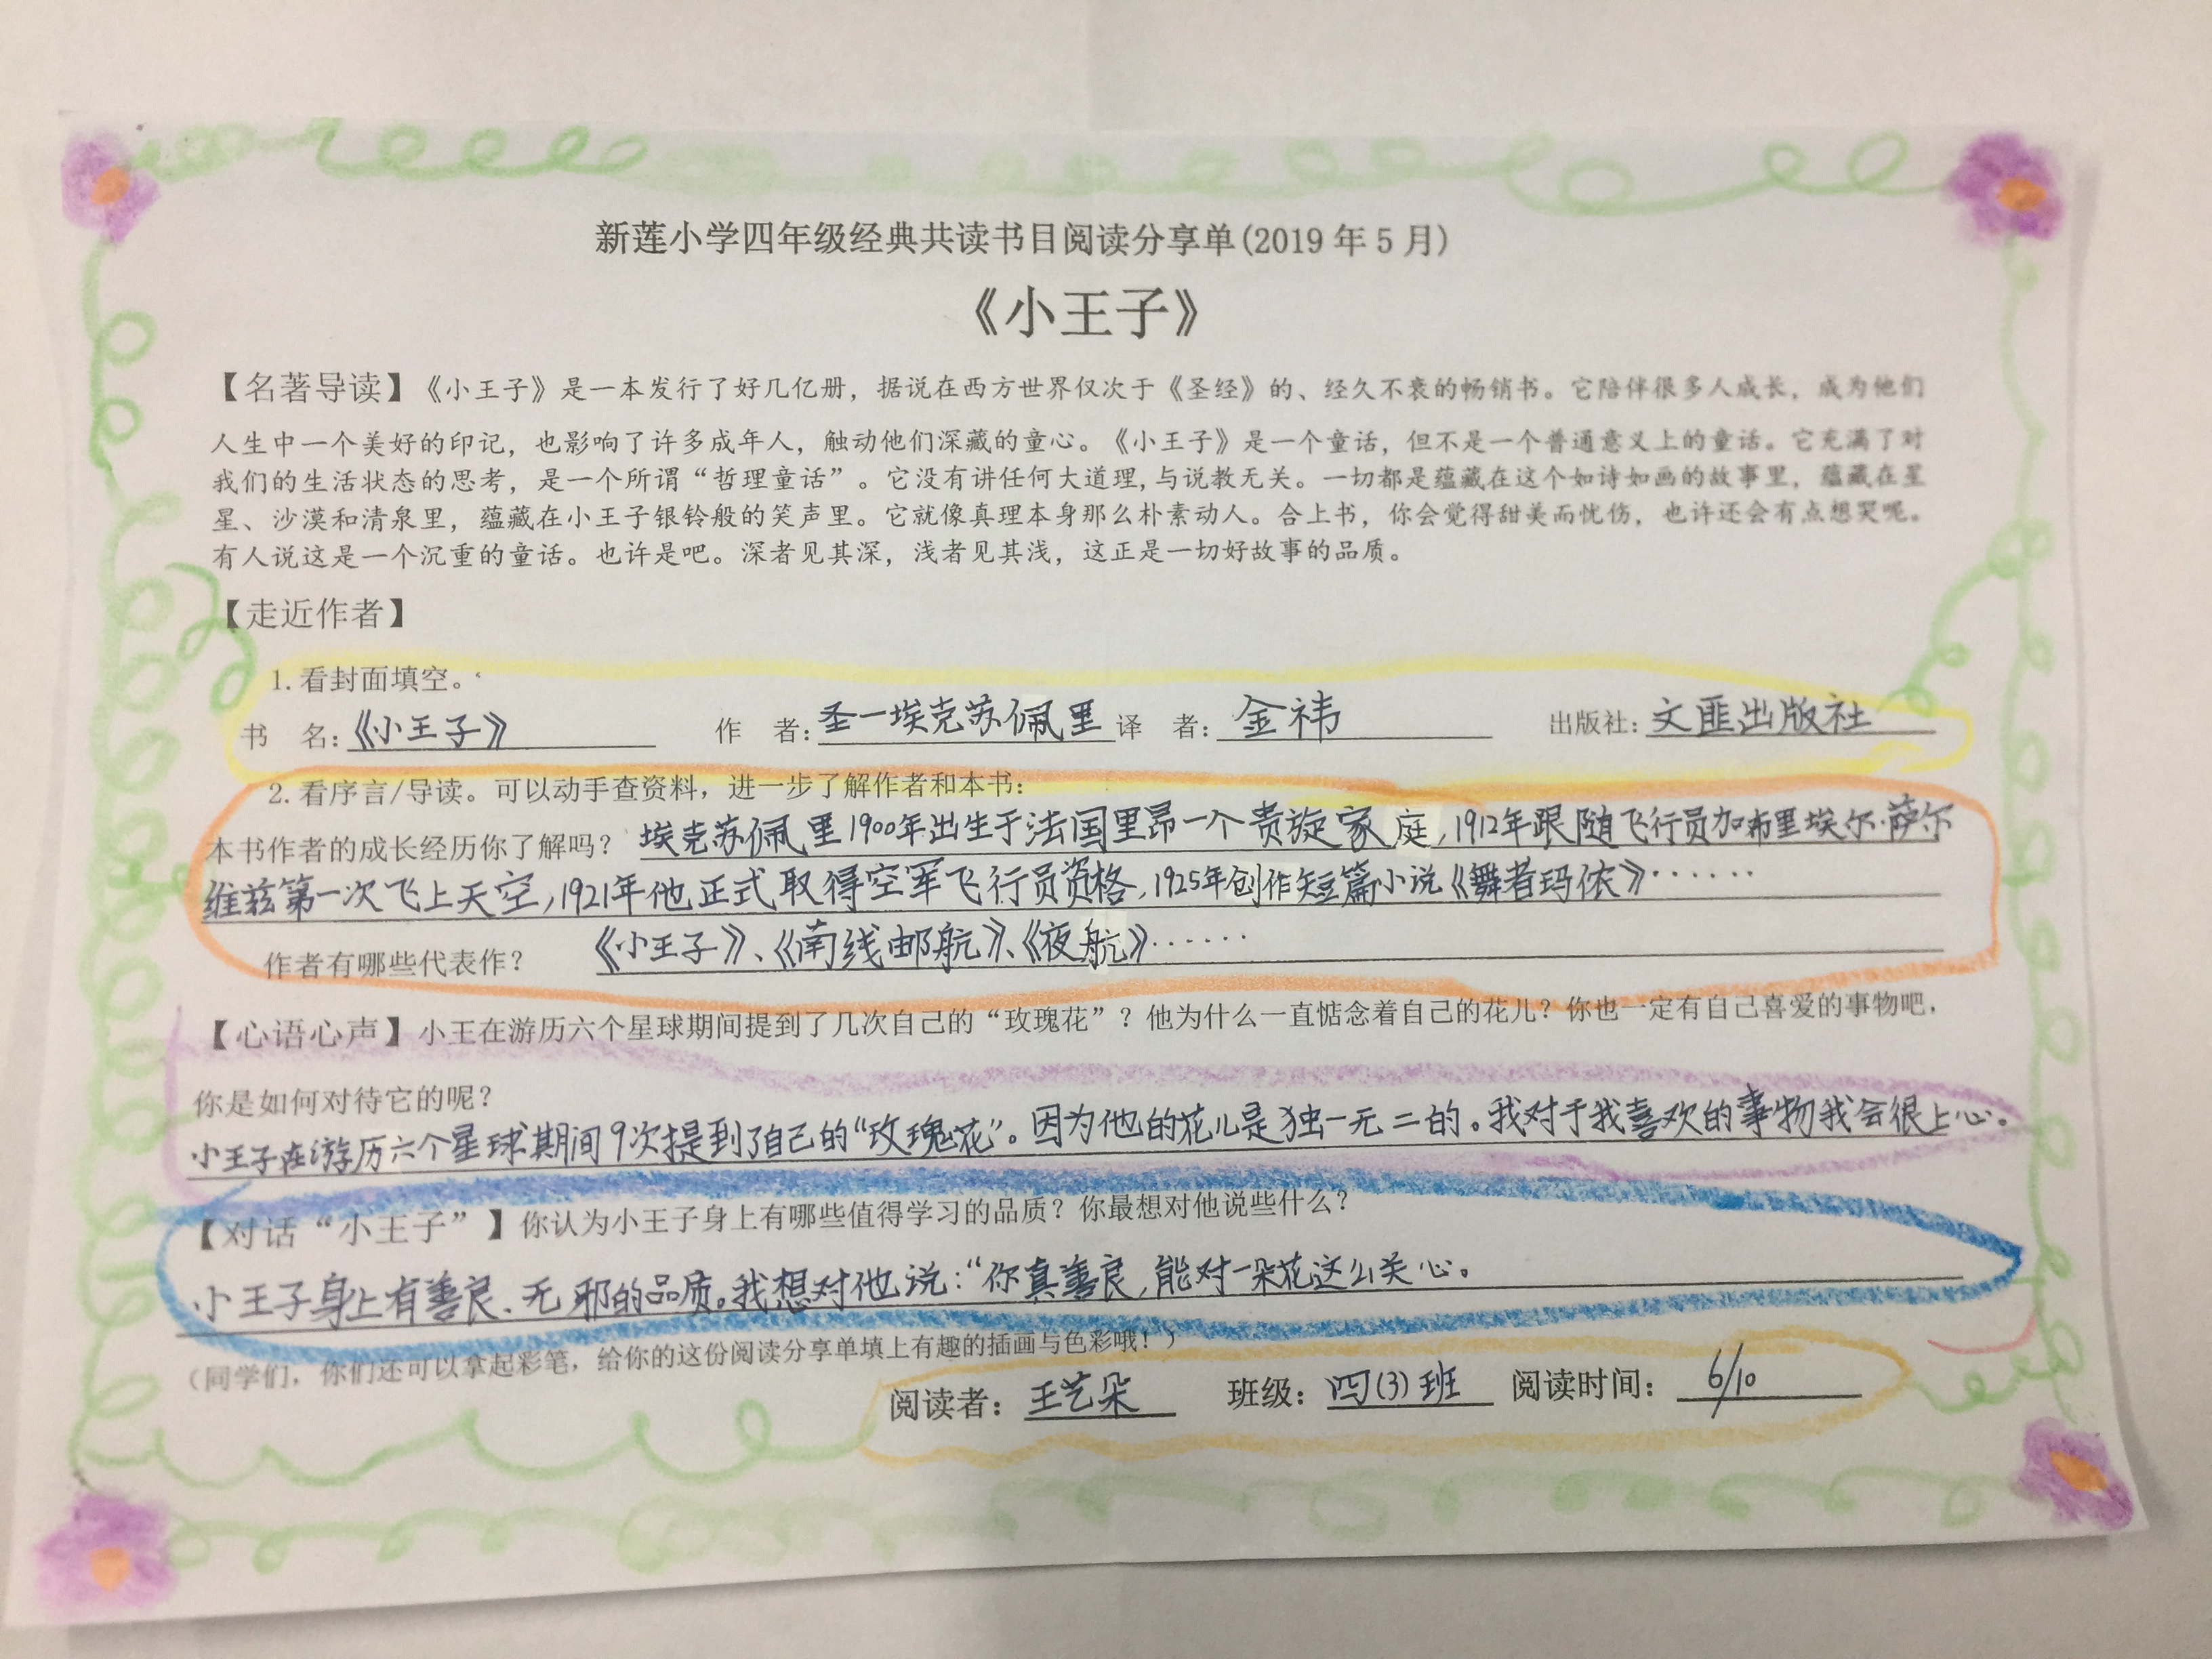 新莲小学四年级经典共读书目阅读分享单(2019年5月)
《小王子》
【名著导读】《小王子》是一本发行了好几亿册，据说在西方世界仅次于《圣经》的、经久不衰的畅销书。它陪伴很多人成长，成为他们
人生中一个美好的印记，也影响了许多成年人，触动他们深藏的童心。《小王子》是一个童话，但不是一个普通意义上的童话。它充满了对
我们的生活状态的思考，是一个所谓“哲理童话”。它没有讲任何大道理,与说教无关。一切都是蕴藏在这个如诗如画的故事里，蕴藏在星
星、沙漠和清泉里，蕴藏在小王子银铃般的笑声里。它就像真理本身那么朴素动人。合上书，你会觉得甜美而忧伤，也许还会有点想哭呢。
有人说这是一个沉重的童话。也许是吧。深者见其深，浅者见其浅，这正是一切好故事的品质。
【走近作者】
1.看封面填空。
书 名:《小王子》 作 者:圣一埃克苏佩里 译 者:金祎 出版社:文匪出版社
2.看序言/导读。可以动手查资料，进一步了解作者和本书:
本书作者的成长经历你了解吗？埃克苏佩里1900年出生于法国里昂一个贵族家庭,1912年跟随飞行员加布里埃尔·萨尔
维兹第一次飞上天空,1921年他正式取得空军飞行员资格,1925年创作短篇小说《舞者玛侬》……
作者有哪些代表作？ 《小王子》、《南线邮航》、《夜航》……
【心语心声】小王在游历六个星球期间提到了几次自己的“玫瑰花”？他为什么一直惦念着自己的花儿？你也一定有自己喜爱的事物吧，
你是如何对待它的呢？
小王子在游历六个星球期间9次提到了自己的“玫瑰花”。因为他的花儿是独一无二的。我对于我喜欢的事物我会很上心。
【对话“小王子”】你认为小王子身上有哪些值得学习的品质？你最想对他说些什么？
小王子身上有善良、无邪的品质。我想对他说:“你真善良,能对一朵花这么关心。
（同学们，你们还可以拿起彩笔，给你的这份阅读分享单填上有趣的插画与色彩哦！）
阅读者：王艺朵 班级：四(3)班 阅读时间：6/10